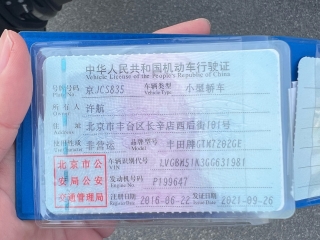 中华人民共和国机动车行驶证
Vehicle License of the People's Republic of China
号牌号码 京JCS835 车辆类型 小型轿车
Plate No. Vehicle Type
所有人 许航
住址 北京市丰台区长辛店西后街181号
使用性质 非营运 品牌型号
车辆识别代号 LVGBM51A3GG631981
VIN
发动机号码 P199647
Engine No.
注册日期 2016-06-22 发证日期 2021-09-26
北京市公
安局公安
交通管理局